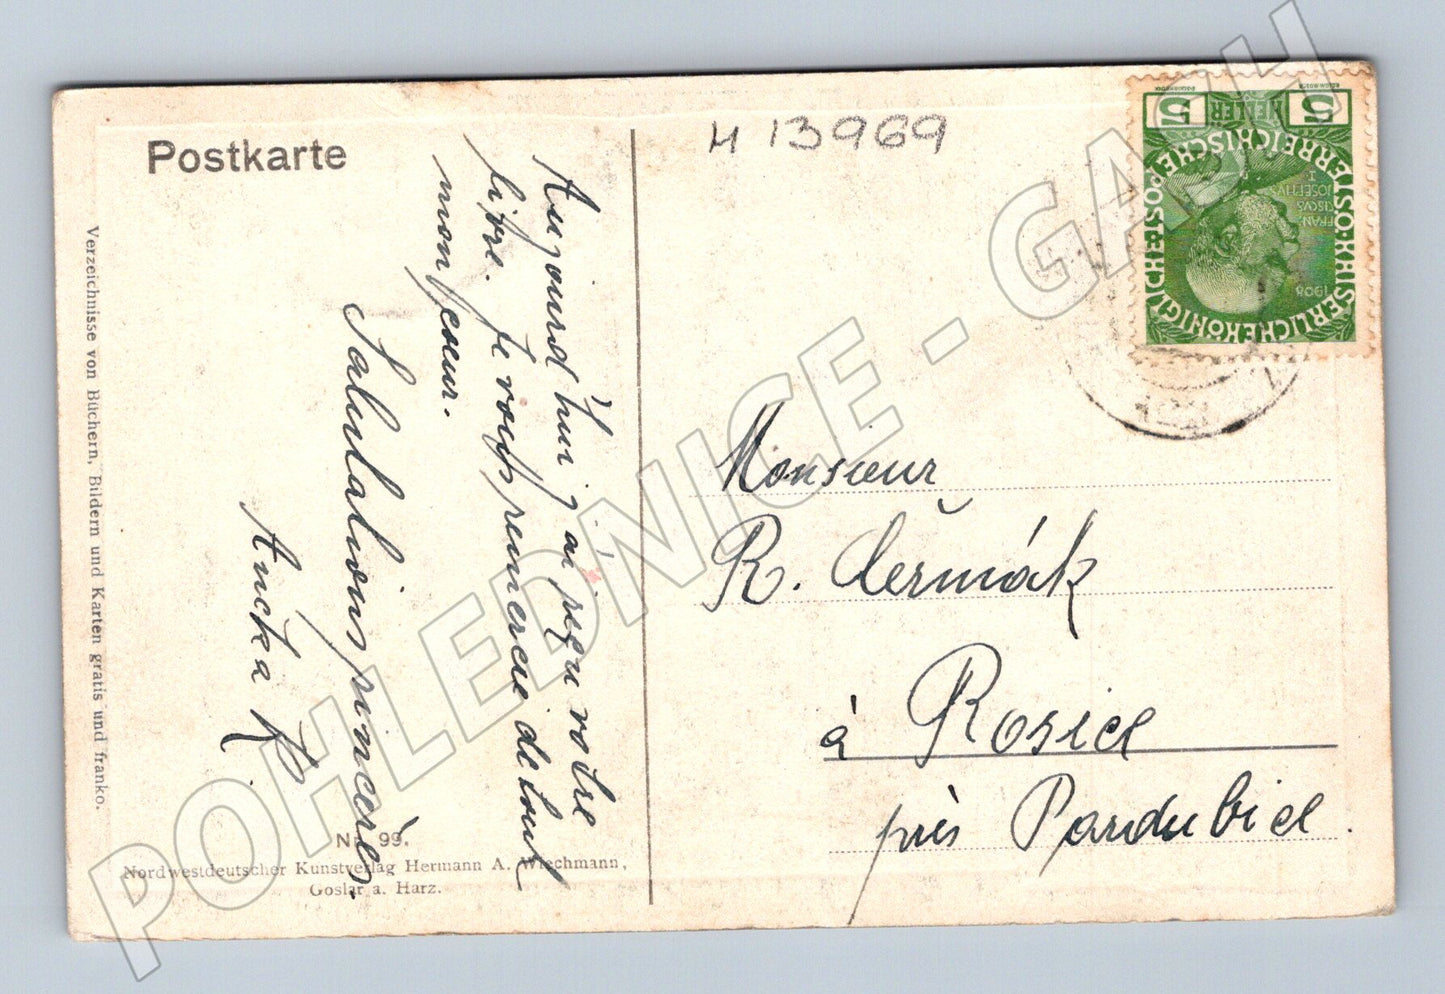 Postkarte
H 13969
Aujourd'hui j'ai reçu votre
livre. Je vous remercie de tout
mon coeur.
Salutations sincères.
Ančka K.
Monsieur
R. Čeřmák
à Rosice
près Pardubice.
5 HELLER 5
KAISERLICHE KÖNIGLICHE ÖSTERREICHISCHE POST
FRAN
CISCVS
JOSEPHVS
I
1908
Verzeichnisse von Büchern, Bildern und Karten gratis und franko.
Nr. 99.
Nordwestdeutscher Kunstverlag Hermann A. Wiechmann,
Goslar a. Harz.
POHLEDNICE - GACH